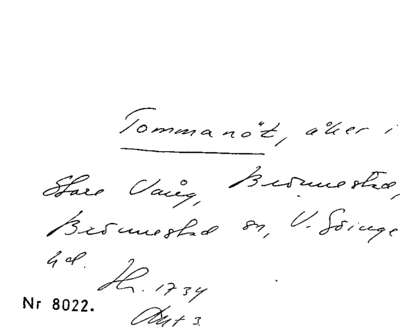 Tommanöt, åker i
Store Vång, Brönnestad,
Brönnestad sn, V. Göinge
hd. Hr. 1734
Akt 3
Nr 8022.